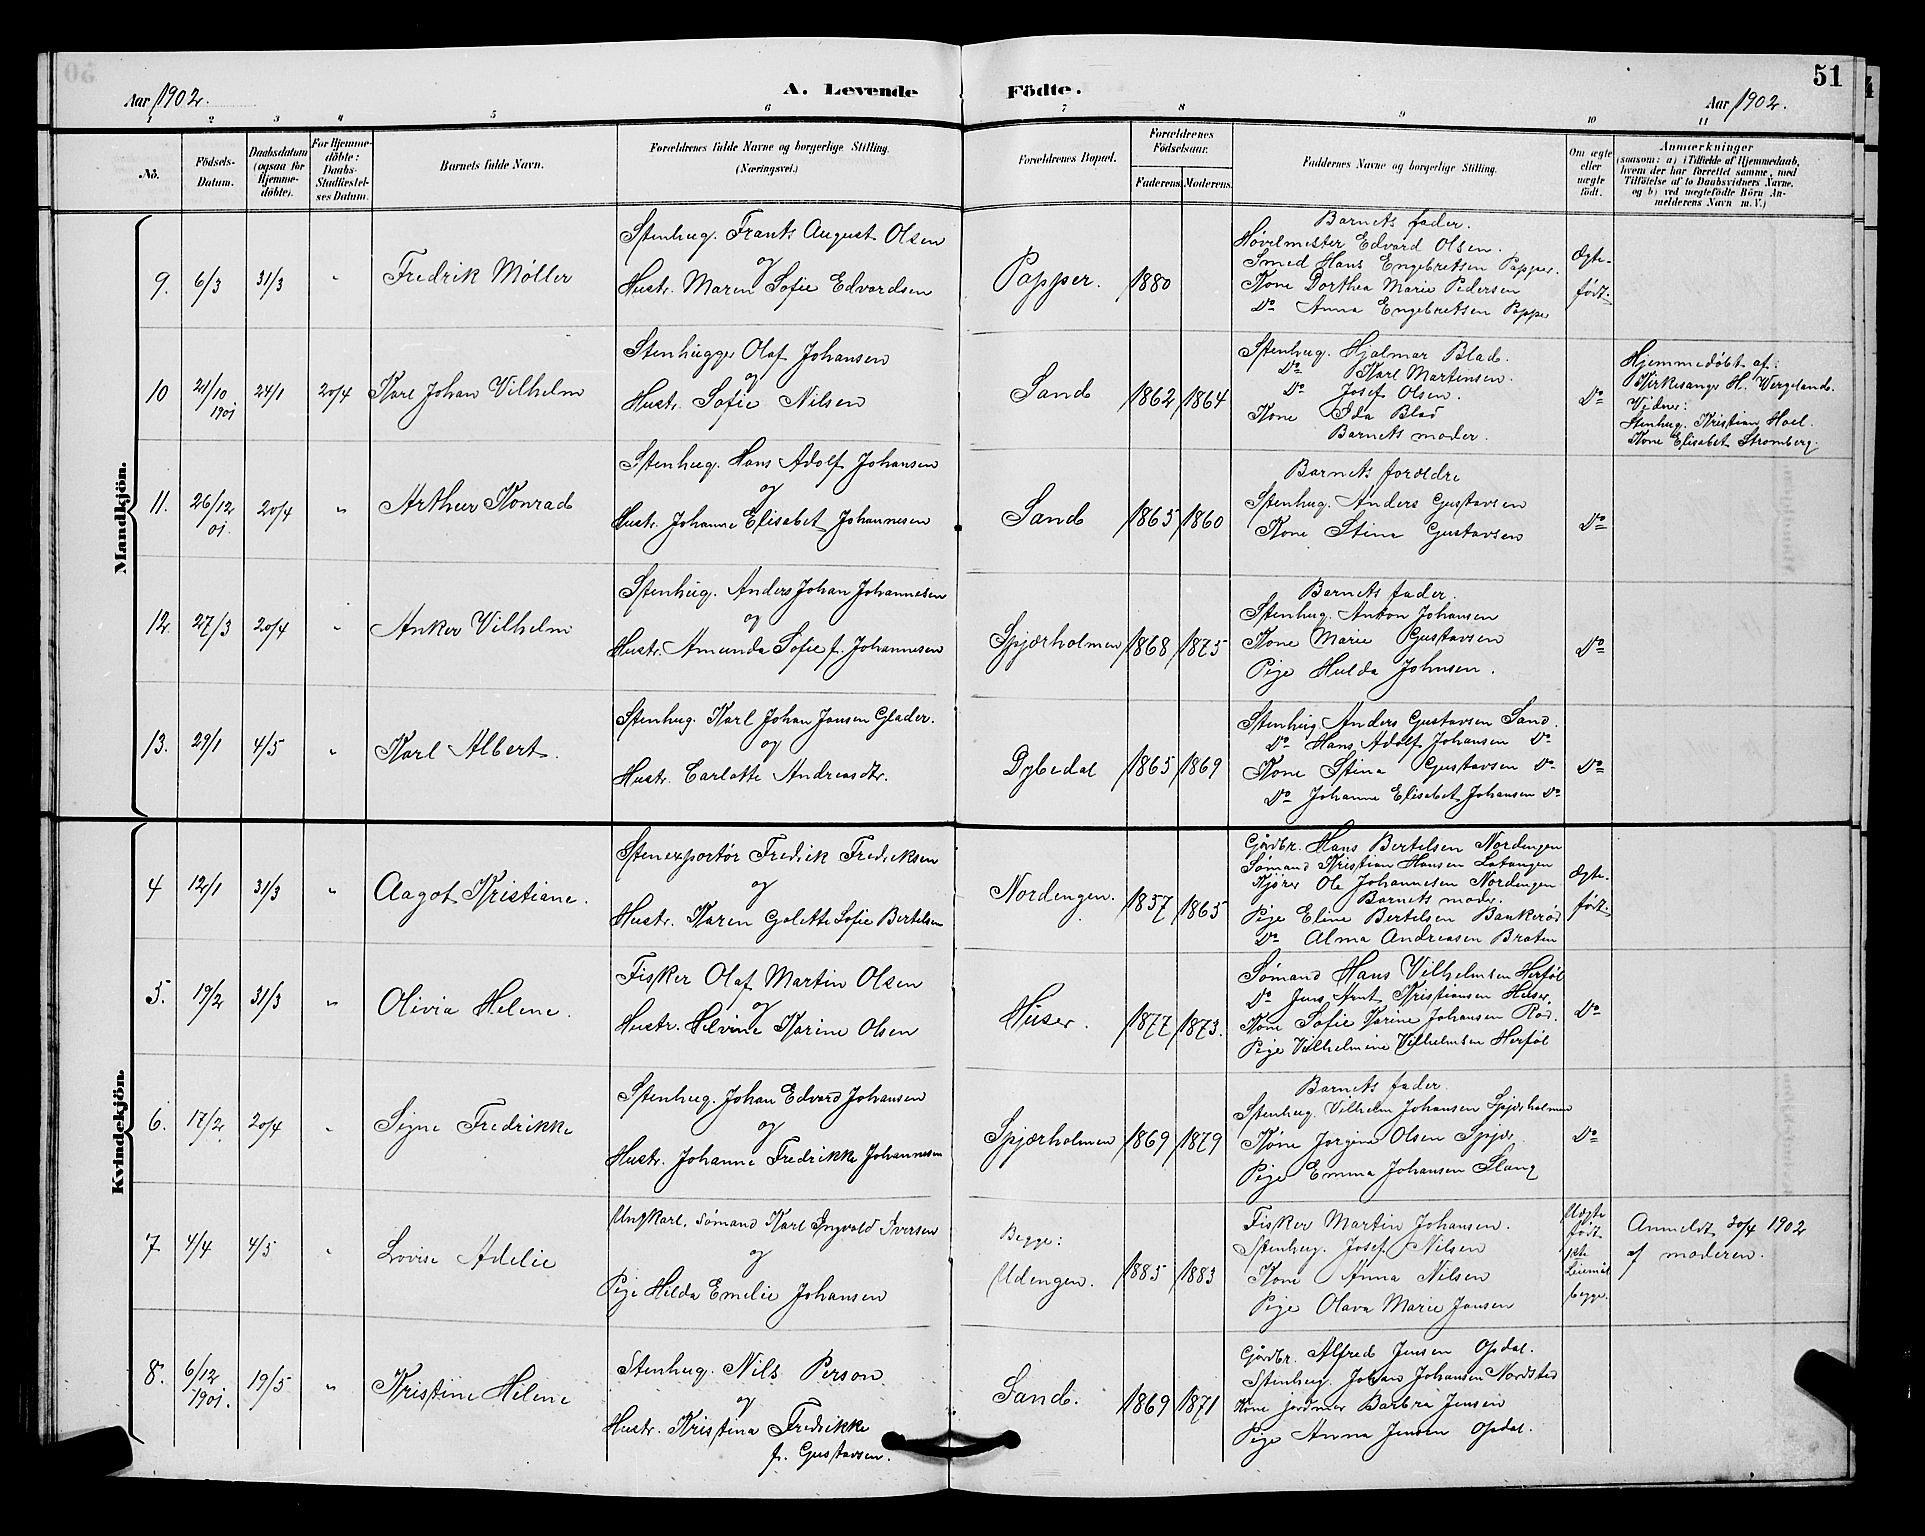 Aar 1902.
A. Levende Födte.
Aar 1902.
51
1 2 3 4 5 6 7 8 9 10 11
No.
Födsels-
Datum.
Daabsdatum
(ogsaa for
Hjemme-
döbte).
For Hjemme-
döbte:
Daabs-
Stadfæstel-
ses Datum.
Barnets fulde Navn.
Forældrenes fulde Navne og borgerlige Stilling.
(Næringsvei.)
Forældrenes Bopæl.
Forældrenes
Födselsaar.
Faderens.
Moderens.
Faddernes Navne og borgerlige Stilling.
Om ægte
eller
uægte
födt.
Anmærkninger
(saasom: a) i Tilfælde af Hjemmedaab,
hvem der har forrettet samme, med
Tilföielse af to Daabsvidners Navne,
og b) ved uegtefödte Börn An-
melderens Navn m. V.)
Mandkjön.
9. 6/3 31/3 " Fredrik Möller
Stenhug. Frants August Olsen
og
Hustr. Maren Sofie Edvardsen
Papper. 1880
Barnets fader.
Hövelmester Edvard Olsen.
Smed Hans Engebretsen Papper.
Kone Dorthea Marie Pedersen
Do Anna Engebretsen Papper
Ægte-
födt.
10 21/10 1901 24/1 20/4 Karl Johan Vilhelm
Stenhugger Olaf Johansen
og
Hustr. Sofie Nilsen
Sand 1862 1864
Stenhug. Hjalmar Blad.
Do Karl Martinsen.
Do Josef Olsen.
Kone Ida Blad
Barnets moder.
Do
Hjemmedöbt af:
Kirkesanger H. Vergeland.
Vidner:
Stenhug. Kristian Hoel.
Kone Elisabet Stromberg.
11. 26/12 01. 20/4 " Arthur Konrad
Stenhug. Hans Adolf Johansen
og
Hustr. Johanne Elisabet Johannesen
Sand 1865 1860
Barnets forældre
Stenhug. Anders Gustavsen
Kone Stina Gustavsen
Do
12. 27/3 20/4 " Anker Vilhelm
Stenhug. Anders Johan Johannesen
og
Hustr. Amunda Sofie f. Johannesen
Spjærholmen 1868 1875
Barnets fader.
Stenhug. Anton Johansen
Kone Marie Gustavsen
Pige Hulda Johnsen.
Do
13. 29/1 4/5 " Karl Albert.
Stenhug. Karl Johan Jansen Glader.
og
Hustr. Carlotte Andreasdtr.
Dybedal 1865 1869
Stenhug Anders Gustavsen Sand.
Do Hans Adolf Johansen Do
Kone Stina Gustavsen Do
Do Johanne Elisabet Johansen Do
Do
Kvindekjön.
4 12/1 31/3 " Aagot Kristiane.
Stenexportör Fredrik Fredriksen
og
Hustr. Karen Golette Sofie Bertelsen
Nordengen. 1857 1865
Gårdbr. Hans Bertelsen Nordengen
Sømand Kristian Hansen
Kjörer Ole Johannesen Nordengen
Barnets moder.
Pige Eline Bertelsen Bankerød
Do Alma Andreasen Braten
Ægte-
födt.
5. 19/2 31/3 " Olivia Helene.
Fisker Olaf Martin Olsen
og
Hustr. Hilvine Karine Olsen
Huser. 1877 1873.
Sømand Hans Vilhelmsen Herføl
Do Jens Arnt Kristiansen Huser.
Kone Sofie Karine Johansen Röd.
Pige Vilhelmine Vilhelmsen Herföl
Do
6. 17/2 20/4 " Signe Fredrikke
Stenhug. Johan Edvard Johansen
og
Hustr. Johanne Fredrikke Johannesen
Spjærholmen 1869 1879
Barnets fader.
Stenhug. Vilhelm Johansen Spjærholmen
Kone Jorgine Olsen Spjær
Pige Emma Johansen Slang
Do
7 4/4 4/5 " Lovise Adelie
Ungkarl, sömand Karl Ingvald Iversen
og
Pige Hilda Emilie Johansen
Begge:
Udengen. 1885 1883
Fisker Martin Johansen.
Stenhug. Josef Nilsen
Kone Anna Nilsen
Pige Olava Marie Jansen
Uægte
födt
1ste
Leiemål
begge.
Anmeldt 30/4 1902
af moderen.
8. 6/12 1901. 19/5 " Kristine Helene
Stenhug. Nils Person
og
Hustr. Kristina Fredrikke
f. Gustavsen.
Sand. 1869 1871
Gårdbr. Alfred Jensen Opdal.
Stenhug. Johan Johansen Nordsted
Kone jordmor Barbra Jensen
Pige Anna Jensen Opdal.